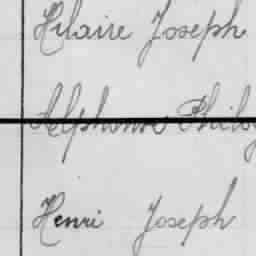 Hilaire Joseph
Alphonse
Henri Joseph